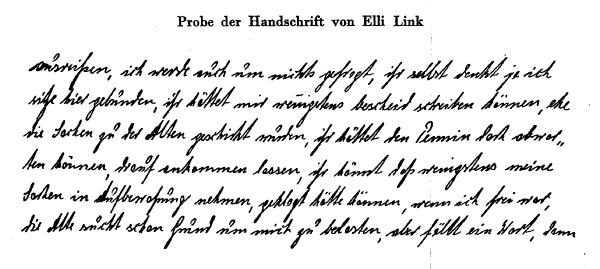 Probe der Handschrift von Elli Link
ausreißen, ich werde auch um nichts gefragt, ihr selbst denkt ja ich
sitze hier gebunden, ihr hättet mir wenigstens bescheid schreiben können, ehe
die Sachen zu der Alten geschickt wurden, ihr hättet den Termin doch abwar„
ten können, drauf ankommen lassen, ihr könnt daß wenigstens meine
Sachen in Aufbewahrung nehmen, geklagt hätte können, wenn ich frei war,
die Alte sucht schon Grund um mich zu belasten, aber fällt ein Wort, dann